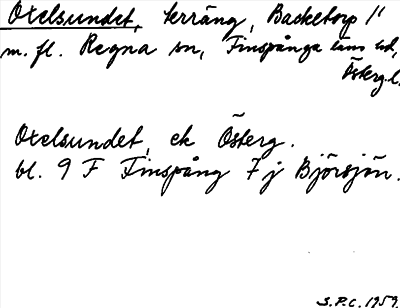 Oxelsundet, terräng, Backetorp 1¹
m. fl. Regna sn, Finspånga läns hd,
Österg.l.
Oxelsundet, ek Österg.
bl. 9 F Finspång 7 j Björsjön.
S.P.C. 1959.